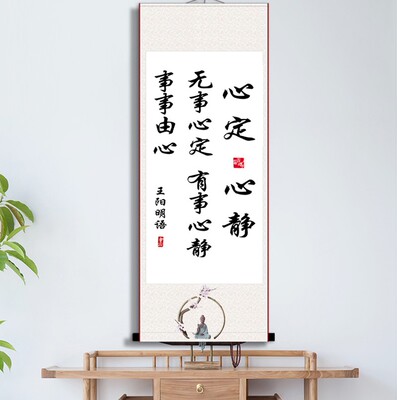 心定 心静
无事心定 有事心静
事事由心
王阳明语